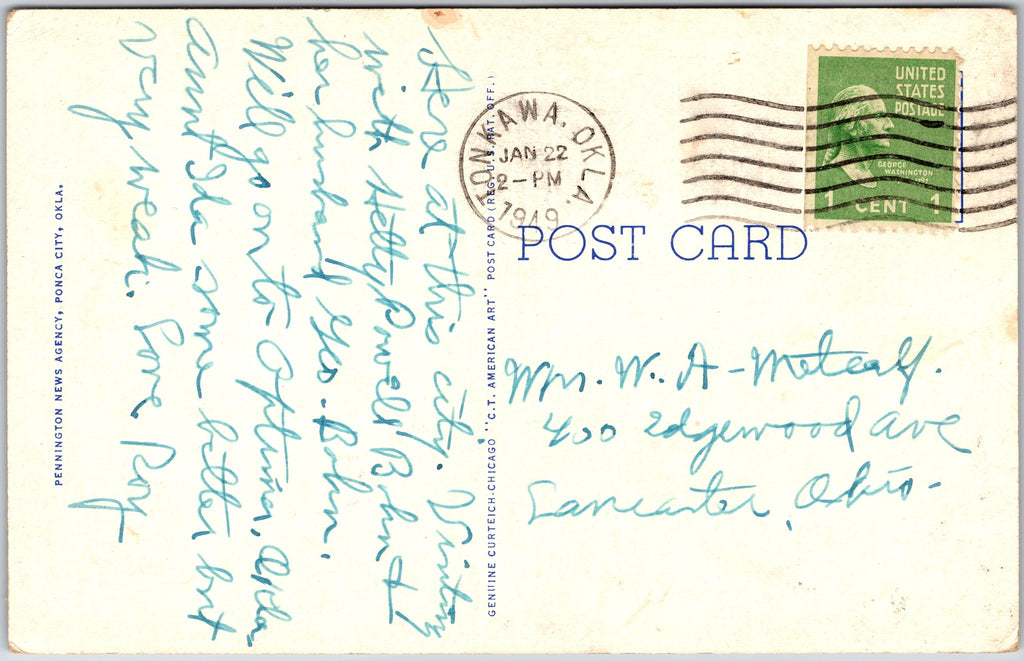 Here at this city. Visiting
with Hetty Powell Bohn &
her husband Geo. Bohn.
Will go on to Optima, Okla.
Aunt Ida some better but
very weak. Love Roy
PENNINGTON NEWS AGENCY, PONCA CITY, OKLA.
GENUINE CURTEICH-CHICAGO "C.T. AMERICAN ART" POST CARD (REG. U.S. PAT. OFF.)
TONKAWA, OKLA.
JAN 22
2-PM
1949
UNITED
STATES
POSTAGE
GEORGE
WASHINGTON
1 CENT 1
POST CARD
Mrs. W. A-Metcalf.
400 Edgewood Ave
Lancaster, Ohio-